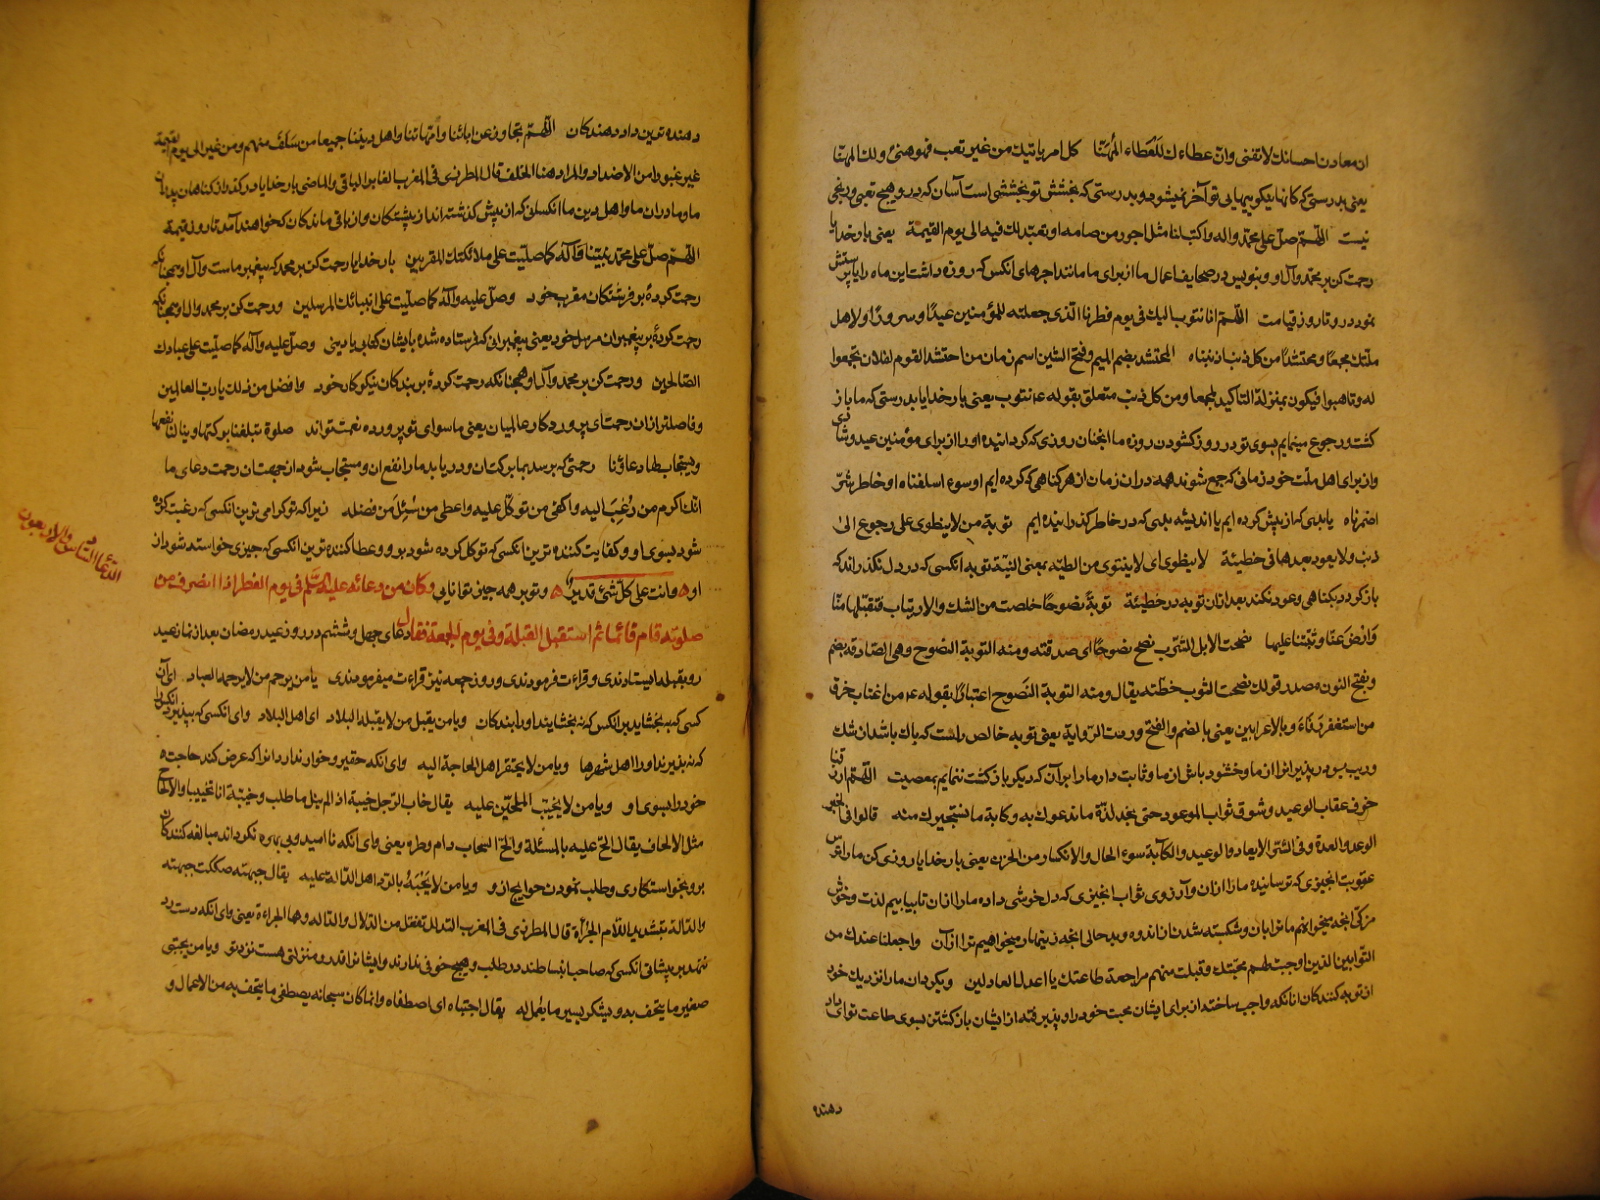 ان معادن احسانك لا تفنى وان عطاءك للعطاء المهنّا كل امر ياتيك من غير تعب فهو هنئ ولك المهنّا
يعنى بدرستى كه كانهاى نيكوييهاى تو آخر نميشود و بدرستى كه بخشش تو بخششى است آسان كه درو هيچ تعبى و رنجى
نيست اللّهمّ صلّ على محمّد واله واكتب لنا مثل اجور من صامه او تعبّد لك فيه الى يوم القيمة يعنى بار خدايا
رحمت كن بر محمد وآل او و بنويس در صحايف اعمال ما از براى ما مانند اجرهاى انكس كه روزه داشت اين ماه را يا پرستش
نمود درو تا روز قيامت اللّهمّ انا نتوب اليك فى يوم فطرنا الّذى جعلته للمؤمنين عيدًا وسرورًا ولاهل
ملّتك مجمعًا ومحتشدًا من كل ذنب اذنبناه المحتشد بضم الميم وفتح الشين اسم زمان من احتشد القوم لفلان تجمعوا
له وتاهبوا فيكون بمنزلة التاكيد لمجمعا ومن كل ذنب متعلق بقوله ع نتوب يعنى بار خدايا بدرستى كه ما باز
كشت ورجوع مينمايم بسوى تو در روز كشودن روزه ما انچنان روزى كه كردانيده او را از براى مؤمنين عيد وشادى
واز براى اهل ملّت خود زمانى كه جمع شوند همه در ان زمان از هر كناهى كه كرده ايم او سوء اسلفناه او خاطر شرّ
اضمرناه يا بدى كه از پيش كرده ايم يا انديشه بدى كه در خاطر كذرانيده ايم توبة من لا ينطوى على رجوع الى
ذنب ولا يعود بعدها فى خطيئة لا ينطوى اى لا ينتوى من الطيّه بمعنى النيّة توبه انكسى كه در دل نكذراند كه
باز كردد بكناهى وعود نكند بعد از ان توبه در خطيئة توبةً نصوحًا خلصت من الشك والارتياب فتقبّلها منّا
وَارضَ عنّا وثبّتنا عليها نصحت الابل الشرب نصح نصوحًا اى صدقته ومنه التوبة النصوح وهى الصّادقه بضم
وبفتح النون مصدر قولك نصحت الثوب خطته يقال ومنه التوبة النَصوح اعتبارًا بقوله ع من اغتاب خرق
من استغفر رَفَاءَ وبالاعرابين يعنى بالضم والفتح وردت الرّواية يعنى توبه خالص راست كه پاك باشد از شك
وريب پس در پذير انرا از ما وخشنود باش از ما وثابت دار ما را بر آن كه ديكر باز كشت ننمايم بمعصيت اللّهمّ ارزقنا
خوف عقاب الوعيد وشوق ثواب الموعود حتى نجد لذّة ما ندعوك به وكابة ما نستجيرك منه قالوا فى الخير
الوعد والعدة وفى الشّر الايعاد والوعيد والكآبة سوء الحال والانكسار من الحزن يعنى بار خدايا روزى كن ما را ترس
عقوبت انچيزى كه ترسانيده ما را از ان وآرزوى ثواب انچيزى كه دلخوشى داده ما را از ان تا بيابيم لذت وخوش
مزكى انچه ميخوانيم ما ترا بان وشكسته شدن از اندوه وبد حالى انچه زينهار ميخواهيم ترا از آن واجعلنا عندك من
التوابين الّذين اوجبت لهم محبّتك وقبلت منهم مراجعة طاعتك يا اعدل العادلين وبكردان ما را نزديك خود
از توبه كنندكان انانكه واجب ساخته از براى ايشان محبت خود را وپذيرفته از ايشان باز كشتن بسوى طاعت تو اى داد
دهنده
دهنده ترين داد دهندكان اللّهمّ تجاوز عن ابائنا وامّهاتنا واهل ديننا جميعا من سَلَفَ منهم ومن غبر الى يوم القيمة
غبر غبورا من الاضداد والمراد هنا الخلف قال المطرزى فى المغرب الغابر الباقى والماضى بار خدايا در كذر از كناهان پدران
ما ومادران ما واهل دين ما انكسانى كه از پيش كذشته اند از پيشينكان واز باقى ماندكان كه خواهند آمد تا روز قيمة
اللّهمّ صلّ على محمّد نبيّنا وآله كما صلّيت على ملائكتك المقربين بار خدايا رحمت كن بر محمد كه پيغمبر ماست وآل او همچنانكه
رحمت كردۀ بر فرشتكان مقرب خود وصلّ عليه وآله كما صلّيت على انبيائك المرسلين ورحمت كن بر محمد وال او همچنانكه
رحمت كردۀ بر پيغمبران مرسل خود يعنى پيغمبرانى كه فرستاده شده بايشان كتابى يا دينى وصلّ عليه وآله كما صلّيت على عبادك
الصّالحين ورحمت كن بر محمد وآل او همچنانكه رحمت كردۀ بر بندكان نيكوكار خود وافضل من ذلك يا ربّ العالمين
وفاضلتر از ان رحمتهاى پروردكار عالميان يعنى ماسواى تو پرورده نعمت تواند صلوة تبلغنا بركتها وينالنا نفعها
ويستجاب لها دعاؤنا رحمتى كه برسد بما بركت ان ودر يابد ما را نفع ان ومستجاب شود از جهت ان رحمت دعاى ما
انّك اكرم من رُغِبَ اليه واكفى من توكّل عليه واعطى من سُئِلَ من فضله زيرا كه تو كرامى ترين انكسى كه رغبت كرده
شود بسوى او وكفايت كننده ترين انكسى كه توكل كرده شود برو وعطا كننده ترين انكسى كه چيزى خواسته شود از
او وانت على كلّ شئ قدير وتو بر همه چيز توانايى وكان من دعائه عليه السّلم فى يوم الفطر اذا انصرف من
صلوته قام قائما ثم استقبل القبلة وفى يوم الجمعة فقال دعاى چهل وششم در روز عيد رمضان بعد از نماز عيد
رو بقبله ايستادندى وقراءت فرمودندى وروز جمعه نيز قراءت ميفرمودندى يا من يرحم من لا يرحمه العباد اى آن
كسى كه ببخشايد بر انكس كه نه بخشايند او را بندكان ويا من يقبل من لا يقبله البلاد اى اهل البلاد واى انكسى كه بپذيرد انكس را
كه نه پذيرند او را اهل شهرها ويا من لا يحتقر اهل الحاجة اليه واى انكه حقير وخوار ندارد انرا كه عرض كند حاجت
خود را بسوى او ويا من لا يخيّب الملحّين عليه يقال خاب الرّجل خيبة اذا لم ينل ما طلب وخيّبته انا تخييبا والالحاح
مثل الالحاف يقال الحّ عليه بالمسئلة والحّ السّحاب دام مطره يعنى واى انكه نا اميد وبى بهره نكرداند مبالغه كنندكان
برو بخواستكارى وطلب نمودن حوايج از و ويا من لا يَجْبَهُ بالرّد اهل الدّالة عليه يقال جبهته صككت جبهته
والدّالة بتشديد اللام الجُرأة قال المطرزى فى المغرب التدلل تفعّل من الدّلال والدّاله وهما الجراءة يعنى واى انكه دست رد
ننهد بر پيشانى انكسى كه صاحب انبساطند در طلب وهيچ خوفى ندارند وايشانرا قدر ومنزلتى هست نزد تو ويا من يجتبى
صغير ما يتحف به ويشكر يسير ما يعمل له يقال اجتباه اى اصطفاه وانما كان سبحانه يصطفى ما يتحف به من الاعمال و
الدّعاء السّادس والاربعون